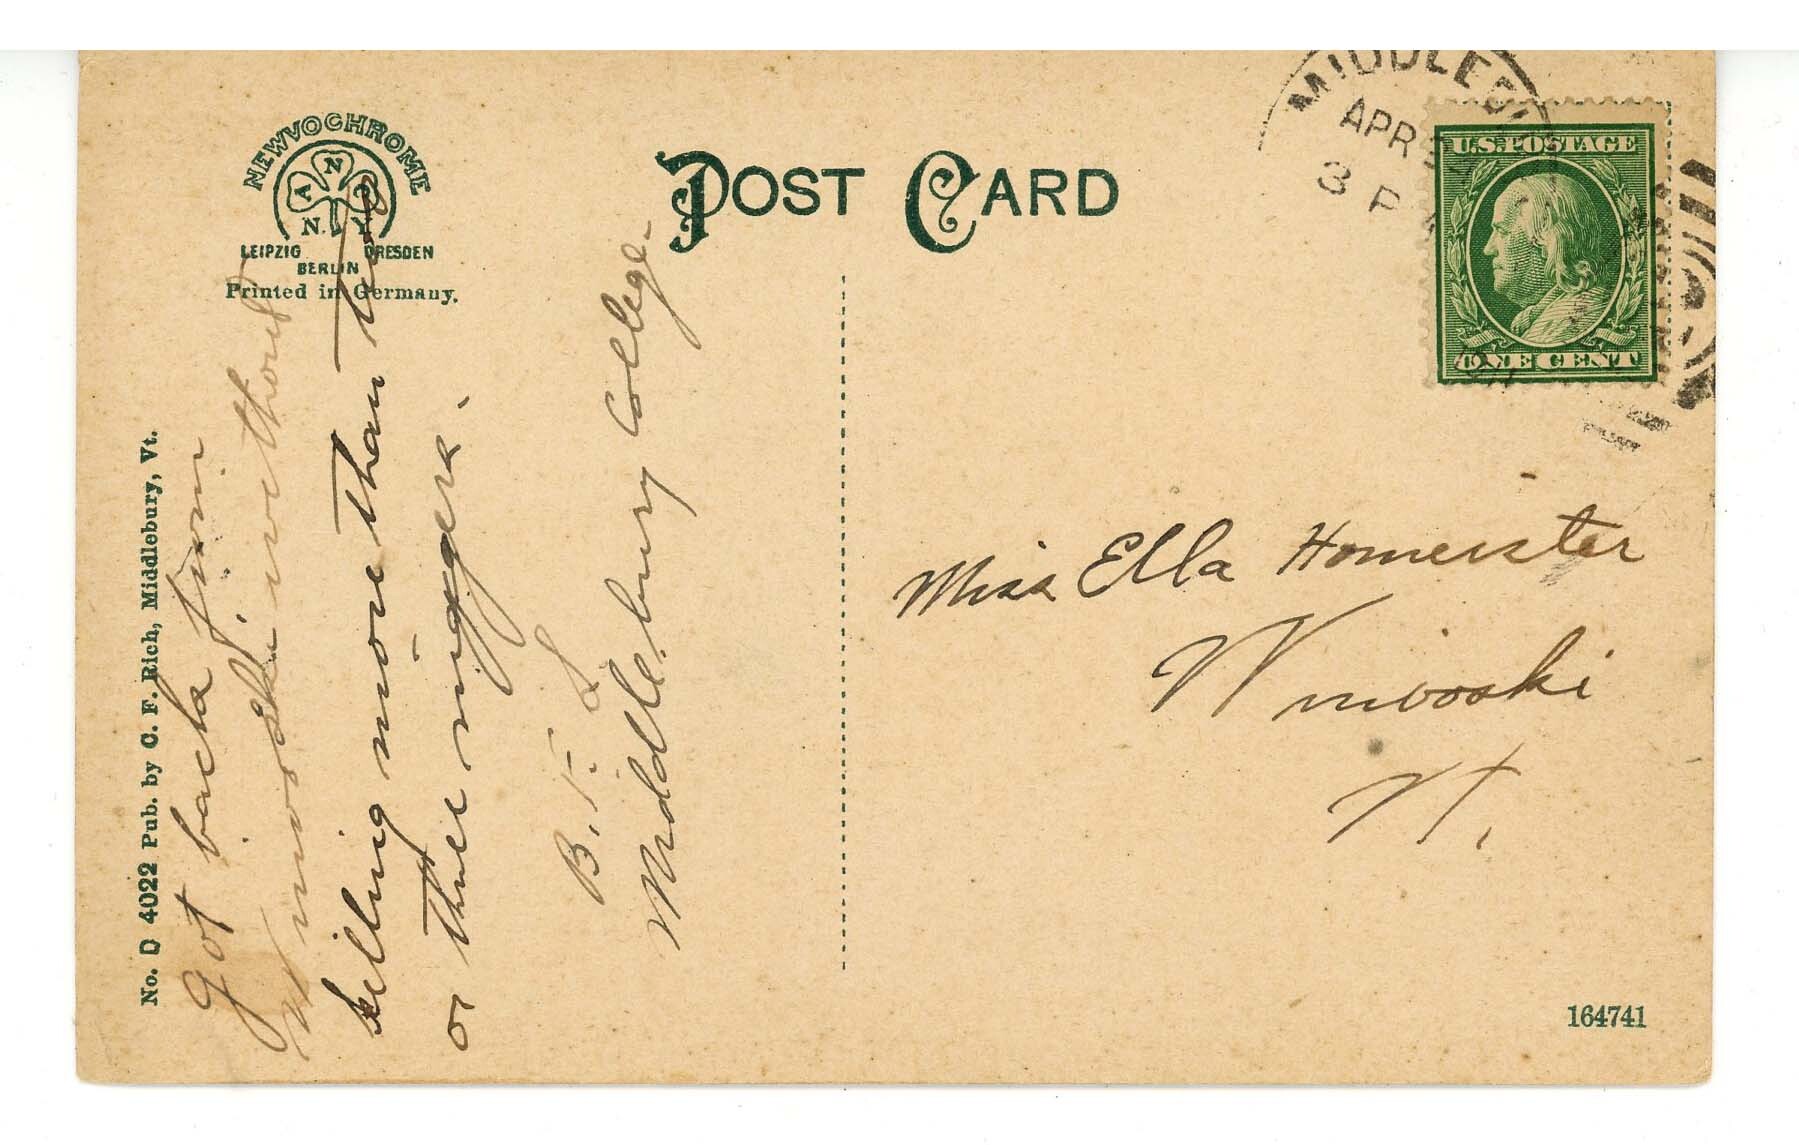 NEWVOCHROME
A N C
N. Y
LEIPZIG DRESDEN
BERLIN
Printed in Germany.
POST CARD
MIDDLEBU
APR
3 P
U.S. POSTAGE
ONE CENT
No. D 4022 Pub. by C. F. Rich, Middlebury, Vt.
Got back from
Winooski without
killing more than two
or three niggers.
B. F. L
Middlebury College.
Miss Ella Homeister
Winooski
Vt.
164741